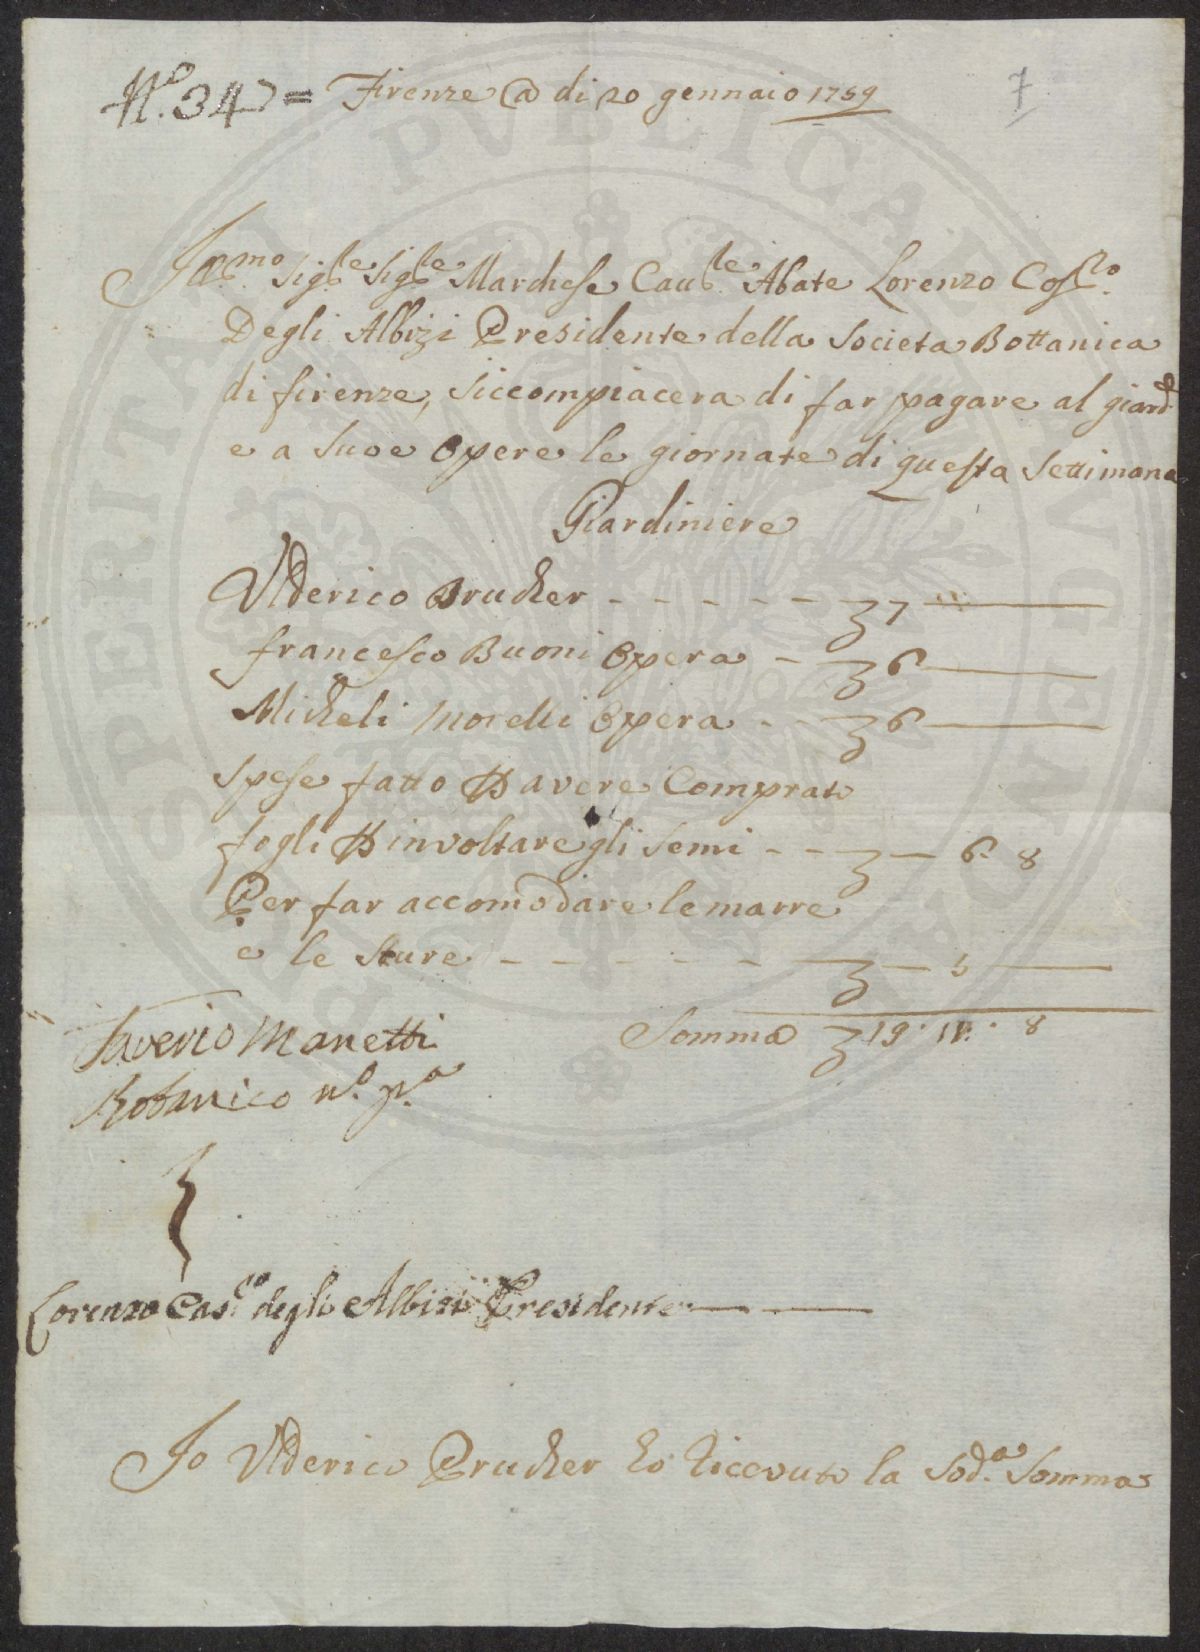 N.o 34 = Firenze @ di 20 gennaio 1759
7
Ill.mo Sig.le Sig.le Marchese Cau.le Abate Lorenzo Cos.to
Degli Albizi Presidente della Societa Bottanica
di firenze, siccompiacera di far pagare al giard.
e a suoe opere le giornate di questa settimana
Giardiniere
Ulderico Prucher - - - - - - 7
francesco Buoni opera - 6
Micheli Morelli opera - - 6
spese fatto P avere Comprato
fogli P involtare gli semi - - - 6. 8
Per far accomodare le marre
e le sture - - - - - - 5
Somma 19. 11. 8
Saverio Manetti
Botanico m.o p.a
Lorenzo Cas.to degli Albizi Presidente
Io Ulderico Prucher ho ricevuto la Sod.a Somma
PERITAS PVBLICAE
PROSPERITATI